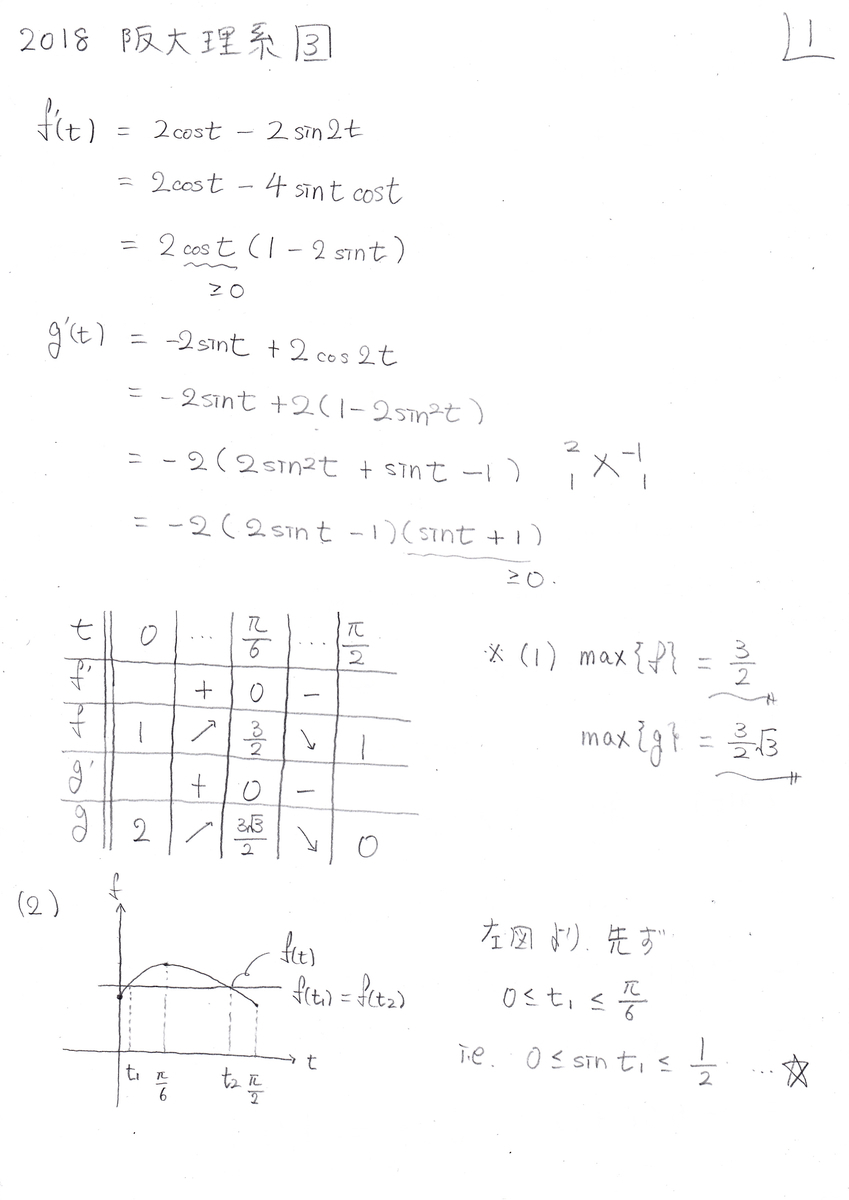 2018 阪大理系 3
1
f'(t) = 2cost - 2sin2t
= 2cost - 4sint cost
= 2cost (1 - 2sint)
≥0
g'(t) = -2sint + 2cos2t
= -2sint + 2(1 - 2sin²t)
= -2(2sin²t + sint - 1)
2 -1
1 × 1
= -2(2sint - 1)(sint + 1)
≥0.
t 0 … π/6 … π/2
f' + 0 -
f 1 ↗ 3/2 ↘ 1
g' + 0 -
g 2 ↗ 3√3/2 ↘ 0
※ (1) max{f} = 3/2
max{g} = 3/2√3
(2)
f
f(t)
f(t₁) = f(t₂)
t
t₁ π/6 t₂ π/2
左図より. 先ず
0 ≤ t₁ ≤ π/6
i.e. 0 ≤ sin t₁ ≤ 1/2 … ☆